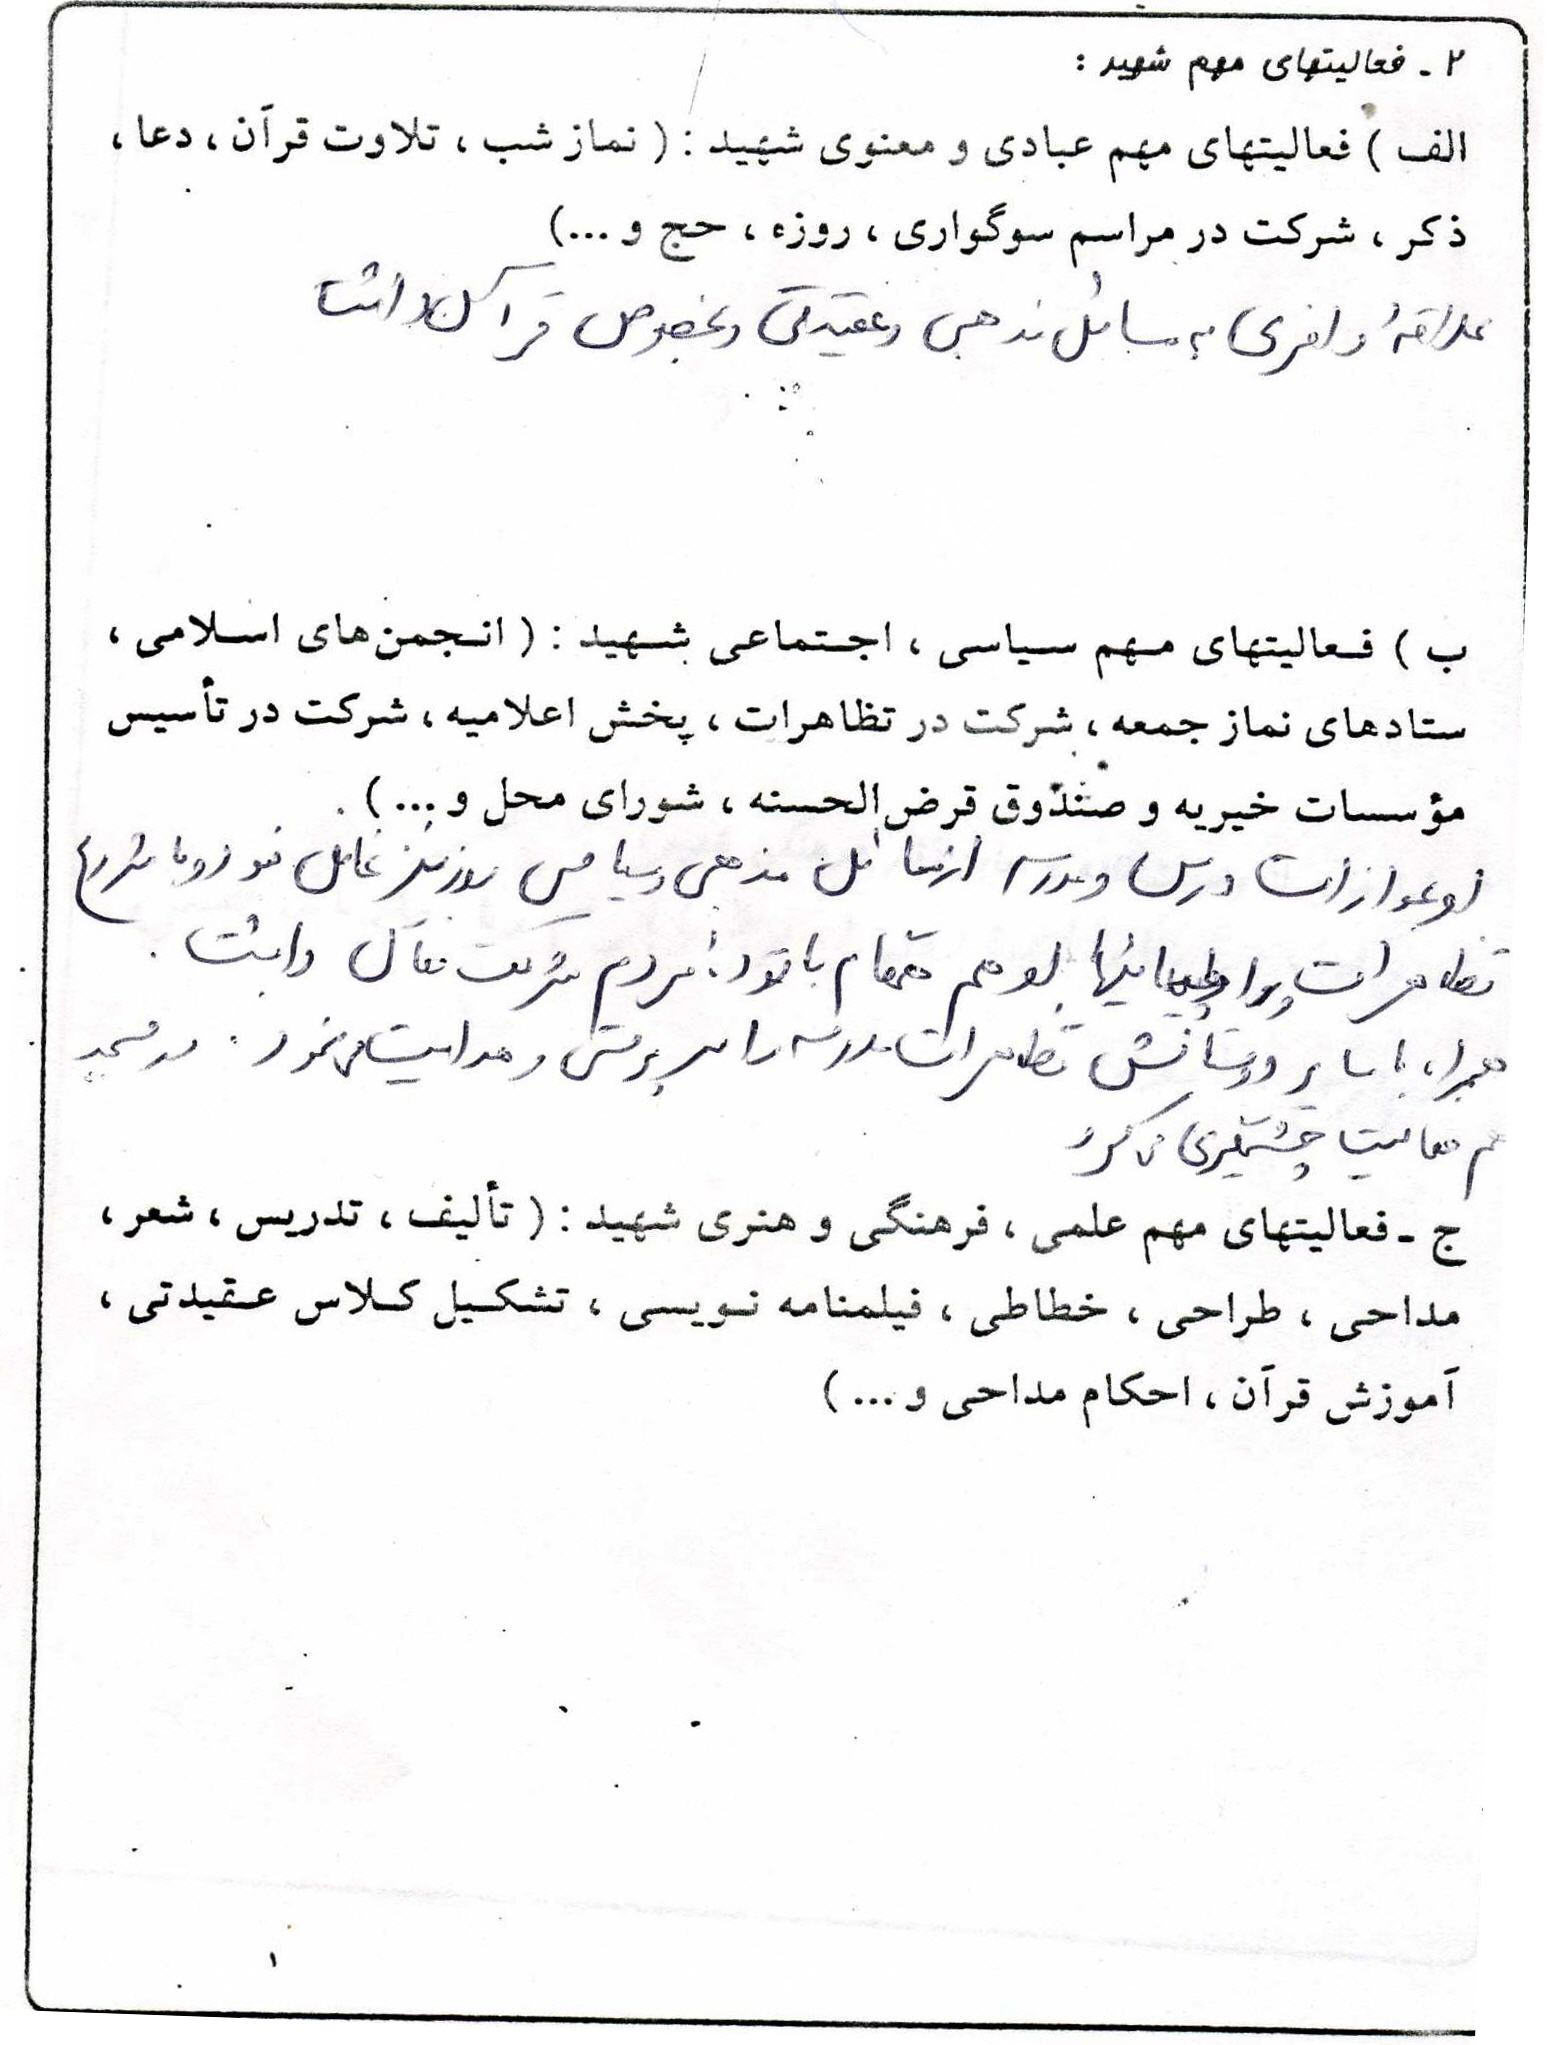 ۲ - فعالیتهای مهم شهید :
الف ) فعالیتهای مهم عبادی و معنوی شهید : ( نماز شب ، تلاوت قرآن ، دعا ،
ذکر ، شرکت در مراسم سوگواری ، روزه ، حج و ...)
علاقهٔ وافری به مسائل مذهبی و عقیدتی و بخصوص قرآن داشت
ب ) فعالیتهای مهم سیاسی ، اجتماعی شهید : ( انجمن‌های اسلامی ،
ستادهای نماز جمعه ، شرکت در تظاهرات ، پخش اعلامیه ، شرکت در تأسیس
مؤسسات خیریه و صندوق قرض‌الحسنه ، شورای محل و ... ) .
او غیر از درس و مدرسه از مسائل مذهبی و سیاسی روز نیز غافل نبود و با شروع
تظاهرات و راهپیمائیها او هم همگام با توده مردم شرکت فعال داشت .
همراه با سایر دوستانش تظاهرات مدرسه را سرپرستی و هدایت می نمود . در مسجد
هم فعالیت چشمگیری می کرد
ج - فعالیتهای مهم علمی ، فرهنگی و هنری شهید : ( تألیف ، تدریس ، شعر ،
مداحی ، طراحی ، خطاطی ، فیلمنامه نویسی ، تشکیل کلاس عقیدتی ،
آموزش قرآن ، احکام مداحی و ... )
۱